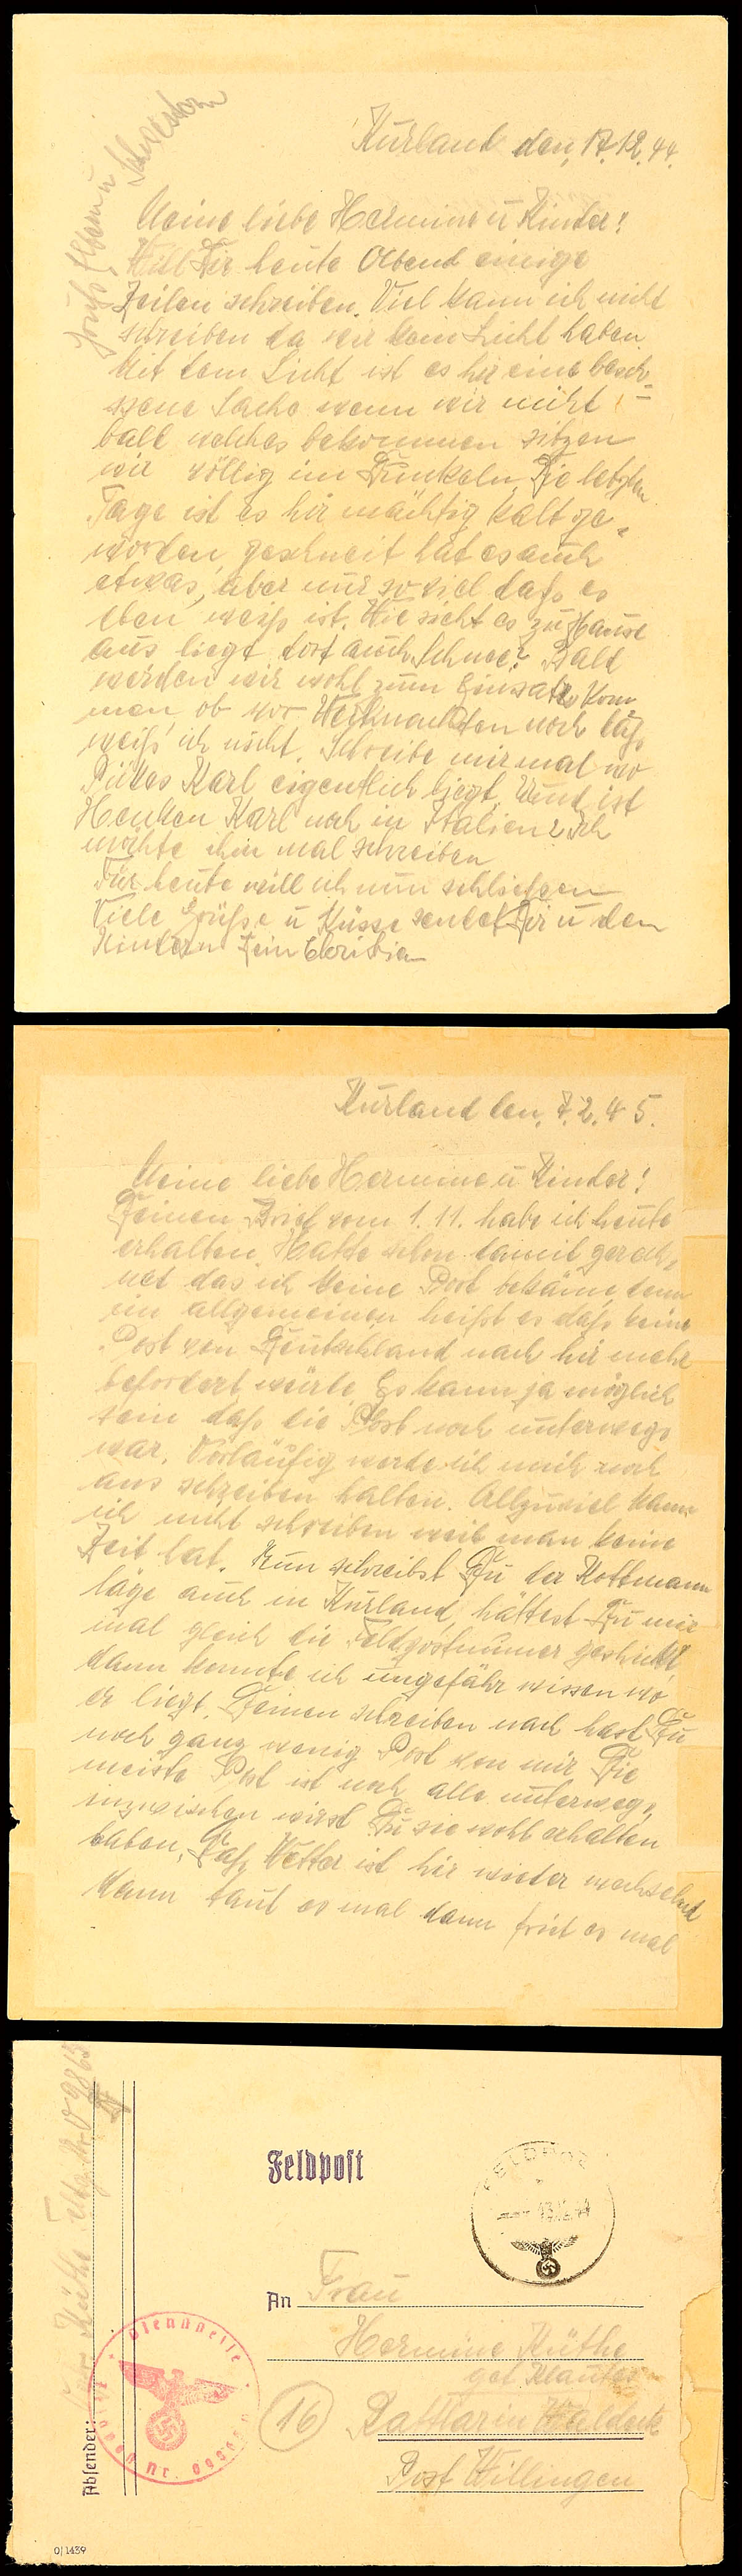 Kurland den, 17.12.44.
Grüße Eltern u Schwestern
Meine liebe Hermine u Kinder!
Will Dir heute Abend einige
Zeilen schreiben. Viel kann ich nicht
schreiben da wir kein Licht haben.
Mit dem Licht ist es hir eine besch-
ssene Sache wenn wir nicht
bald welches bekommen sitzen
wir völlig im Dunkeln, Die letzten
Tage ist es hir mächtig kalt ge-
worden, geschneit hat es auch
etwas, aber nur so viel daß es
eben weiß ist. Wie sieht es zu Hause
aus liegt dort auch Schnee? Bald
werden wir wohl zum Einsatz kom
men, ob vor Weihnachten noch
weiß ich nicht. Schreibe mir mal wo
Karl eigentlich liegt. Und ist
Karl noch in Italien? Ich
möchte ihm mal schreiben
Für heute will ich nun schließen
Viele Grüße u Küsse sendet Dir u den
Kindern Dein Christian
Kurland den, 7.2.45.
Meine liebe Hermine u Kinder!
Deinen Brief vom 1.11. habe ich heute
erhalten. Hatte schon damit gerech-
net das ich keine Post bekäme, denn
im allgemeinen heißt es daß keine
Post von Deutschland nach hir mehr
befördert würde. Es kann ja möglich
sein daß die Post noch unterwegs
war. Vorläufig werde ich mich noch
ans schreiben halten. Allzuviel kann
ich nicht schreiben weil man keine
Zeit hat. Nun schreibst Du der Kottmann
läge auch in Kurland, hättest Du mir
mal gleich die Feldpostnummer geschickt
dann konnte ich ungefähr wissen wo
er liegt. Deinen schreiben nach hast Du
noch ganz wenig Post von mir Die
meiste Post ist noch alle unterwegs,
inzwischen wirst Du sie wohl erhalten
haben. Daß Wetter ist hir wieder wechselnd
dann taut es mal dann friert es mal
Feldpost
FELDPOST
An Frau
Hermine Küthe
geb.
(16) Rattlar in Waldeck
Post Willingen
Absender:
Küthe
Dienststelle
Feldpost Nr.
0/1439